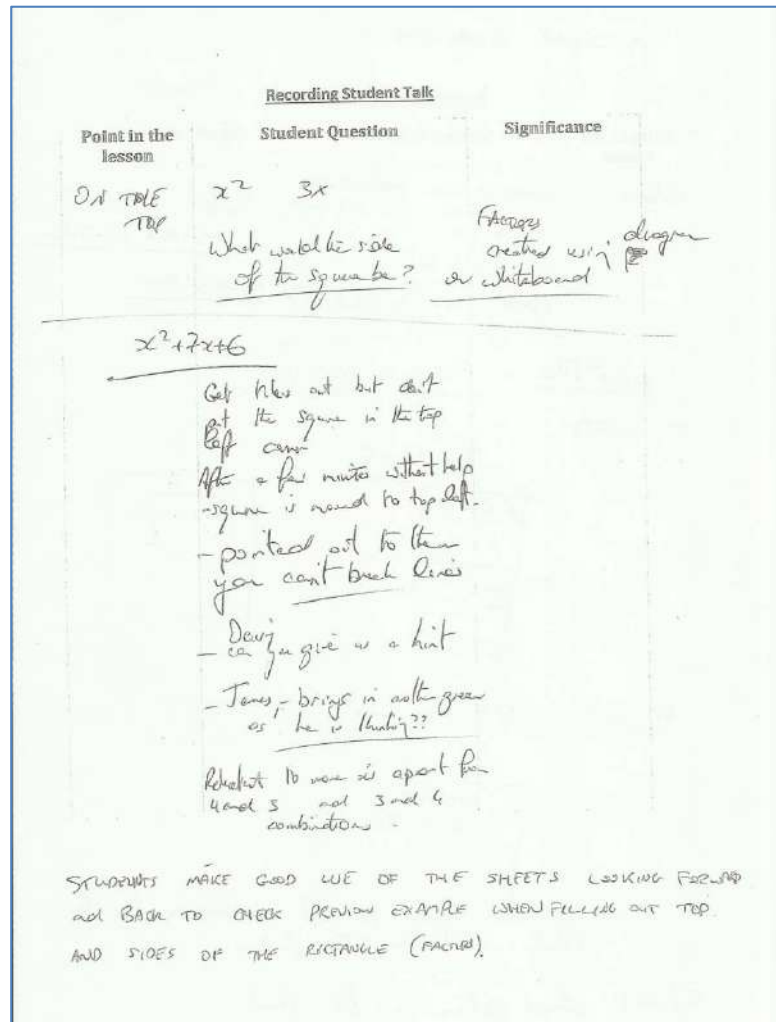 Recording Student Talk
Point in the lesson
Student Question
Significance
ON TABLE TOP
x² 3x
What would the side
of the square be?
FACTORS
created using diagram
or whiteboard
x²+7x+6
Get tiles out but don't
put the square in the top
left corner
After a few minutes without help
- square is moved to top left.
- pointed out to them
you can't break lines
- Dewi,
can you give us a hint
- James, - brings in another green
as he is thinking??
Reluctant to move six apart from
4 and 3 and 3 and 4
combinations.
STUDENTS MAKE GOOD USE OF THE SHEETS LOOKING FORWARD
and BACK TO CHECK PREVIOUS EXAMPLE WHEN FILLING OUT TOP
AND SIDES OF THE RECTANGLE (FACTORS).